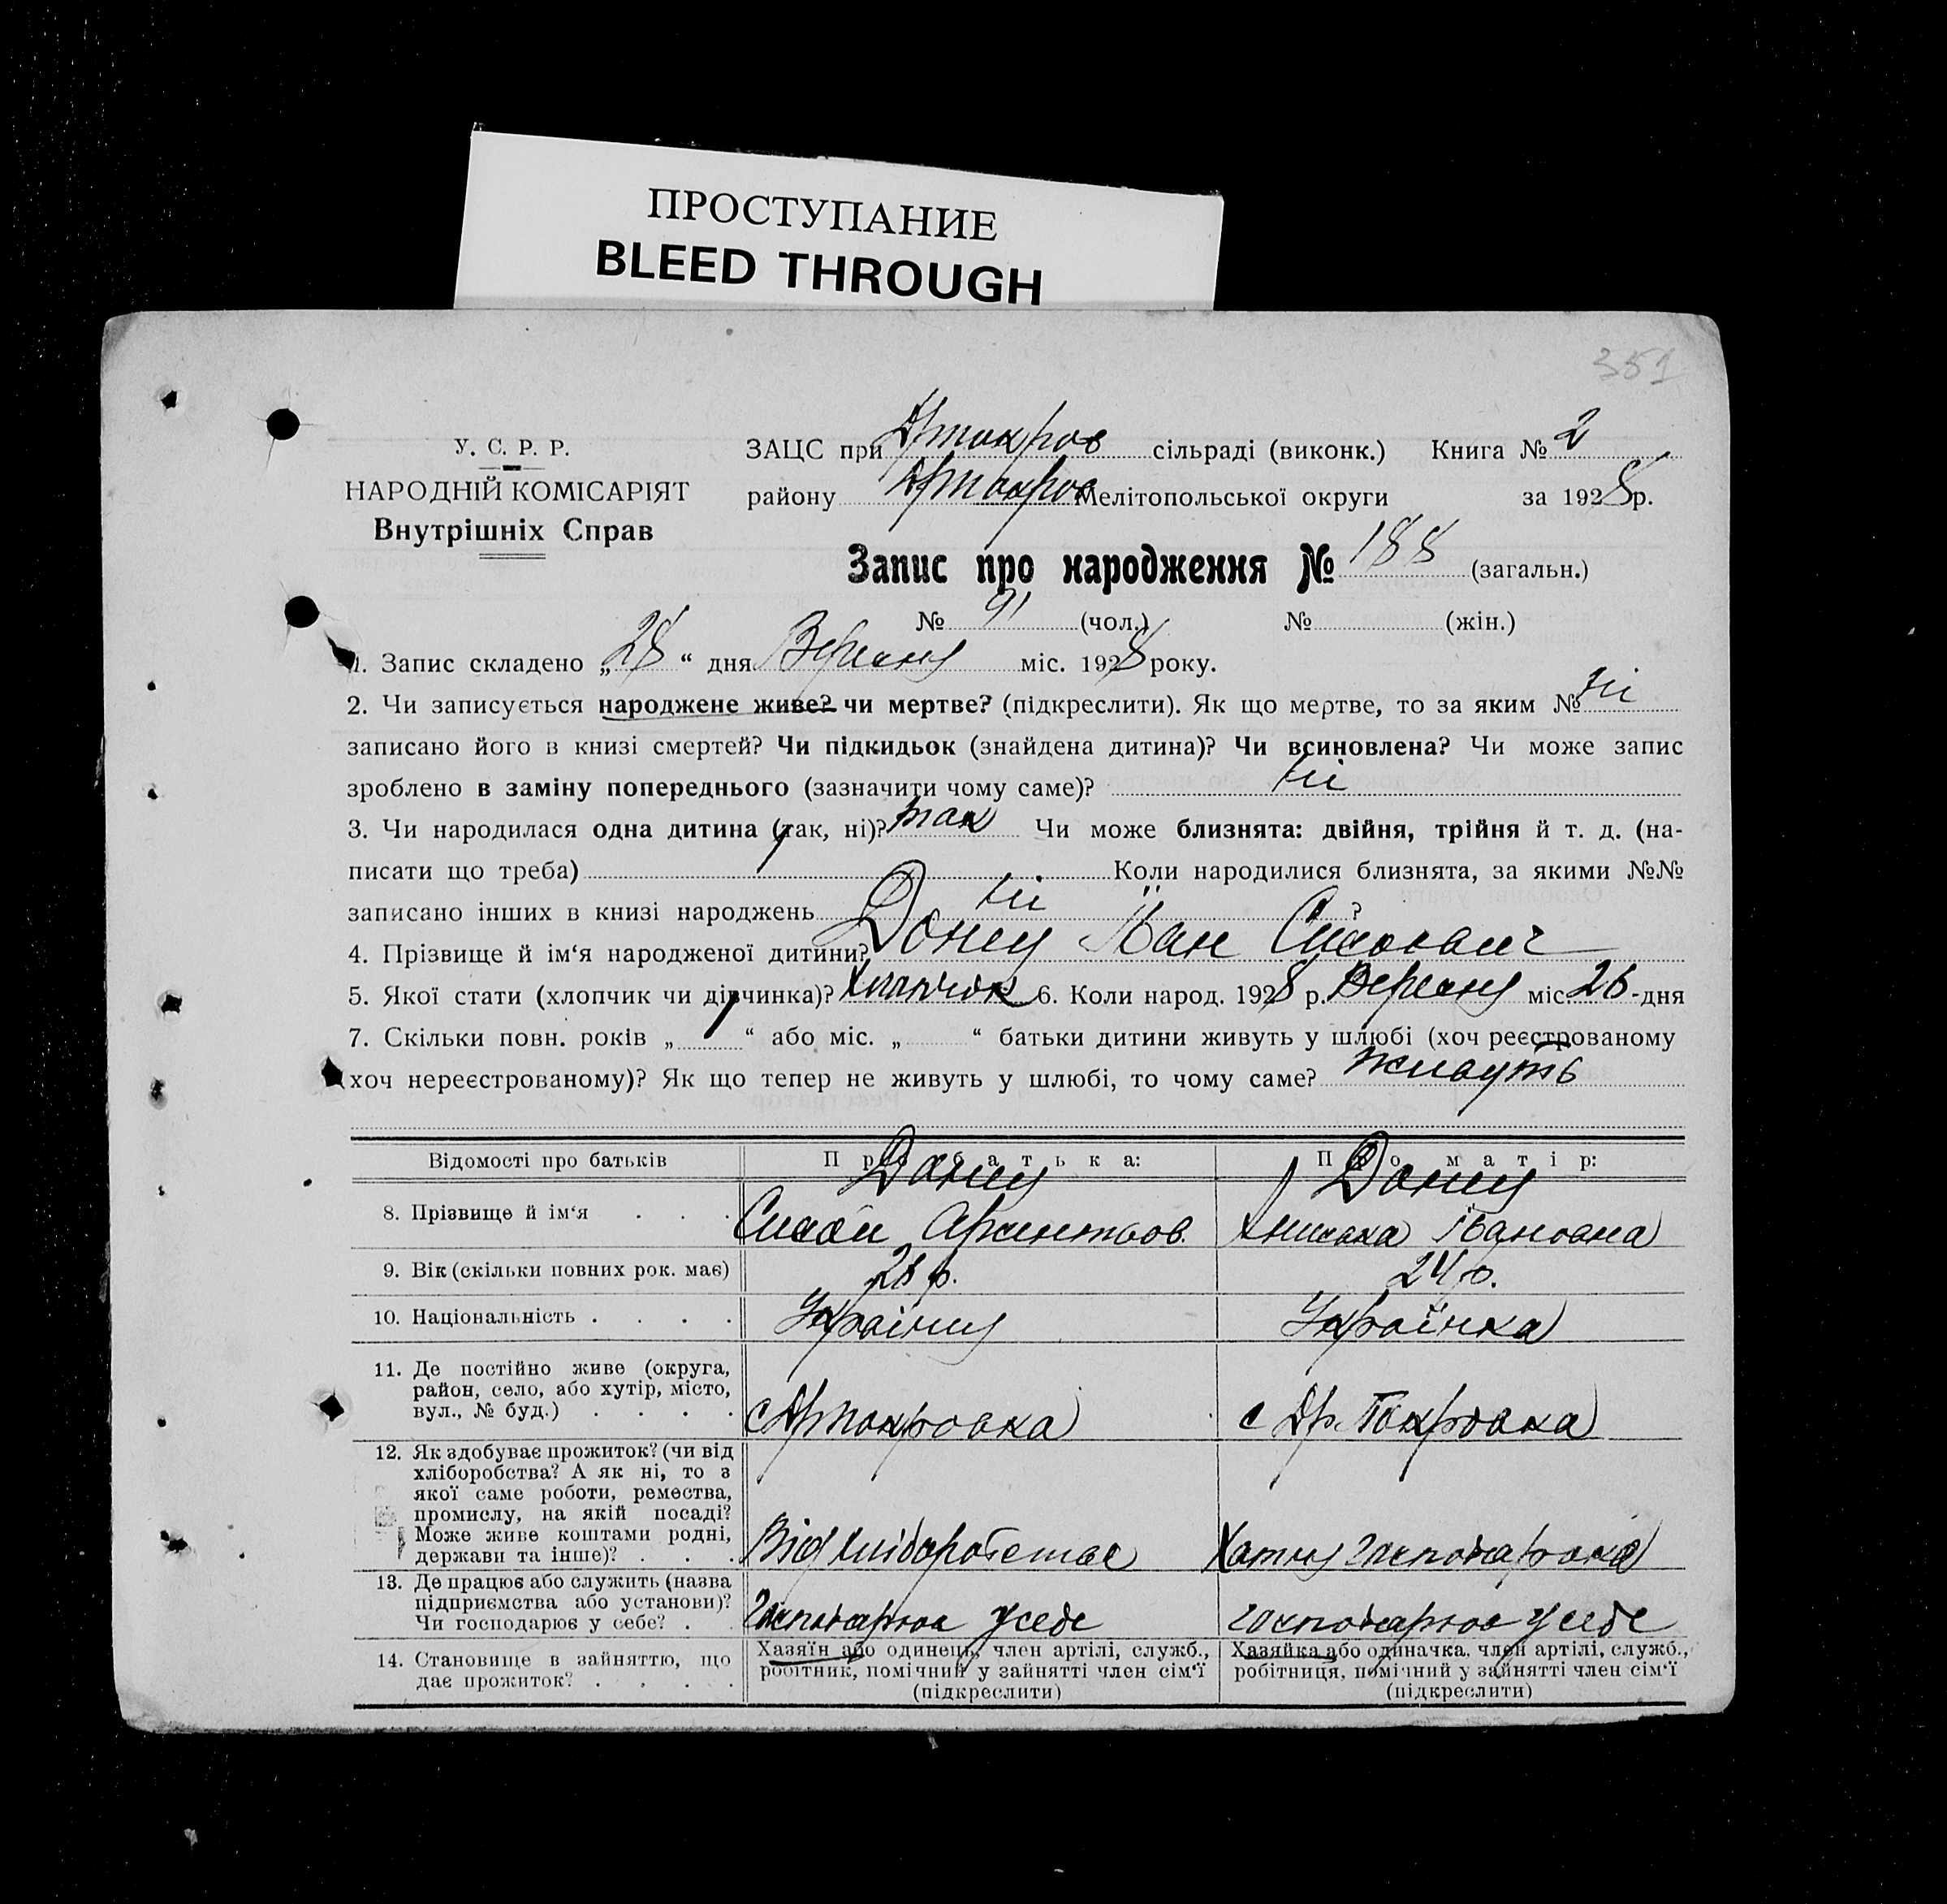 ПРОСТУПАНИЕ
BLEED THROUGH
351
У. С. Р. Р.
НАРОДНІЙ КОМІСАРІЯТ
Внутрішніх Справ
ЗАЦС при Др покров сільраді (виконк.) Книга № 2
району Др покров Мелітопольської округи за 1928 р.
Запис про народження № 188 (загальн.)
№ 91 (чол.) № (жін.)
1. Запис складено „28“ дня Вересня міс. 1928 року.
2. Чи записується народжене живе? чи мертве? (підкреслити). Як що мертве, то за яким № ні
записано його в книзі смертей? Чи підкидьок (знайдена дитина)? Чи всиновлена? Чи може запис
зроблено в заміну попереднього (зазначити чому саме)? ні
3. Чи народилася одна дитина (так, ні)? так Чи може близнята: двійня, трійня й т. д. (на-
писати що треба) Коли народилися близнята, за якими №№
записано інших в книзі народжень ні ?
4. Прізвище й ім‘я народженої дитини? Донец Іван Сисоович
5. Якої стати (хлопчик чи дівчинка)? Хлопчик 6. Коли народ. 1928 р. Вересня міс. 26 -дня
7. Скільки повн. років „ “ або міс. „ “ батьки дитини живуть у шлюбі (хоч реєстрованому
(хоч нереєстрованому)? Як що тепер не живуть у шлюбі, то чому саме? живуть
Відомості про батьків Про батька: Про матір:
8. Прізвище й ім‘я Донец Сисой Донец Івановна
9. Вік (скільки повних рок. має) 28 р. 24 р.
10. Національність Українец Українка
11. Де постійно живе (округа,
район, село, або хутір, місто,
вул., № буд.) с Др покровка с Др. Покровка
12. Як здобуває прожиток? (чи від
хліборобства? А як ні, то з
якої саме роботи, ремества,
промислу, на якій посаді?
Може живе коштами родні,
держави та інше)? Від хліборобства Хатня господарка
13. Де працює або служить (назва
підприємства або установи)?
Чи господарює у себе? Господарює у себе господарює у себе
14. Становище в зайняттю, що
дає прожиток?
Хазяїн або одинець, член артілі, служб.,
робітник, помічний у зайнятті член сім‘ї
(підкреслити)
Хазяйка або одиначка, член артілі, служб.,
робітниця, помічний у зайнятті член сім‘ї
(підкреслити)